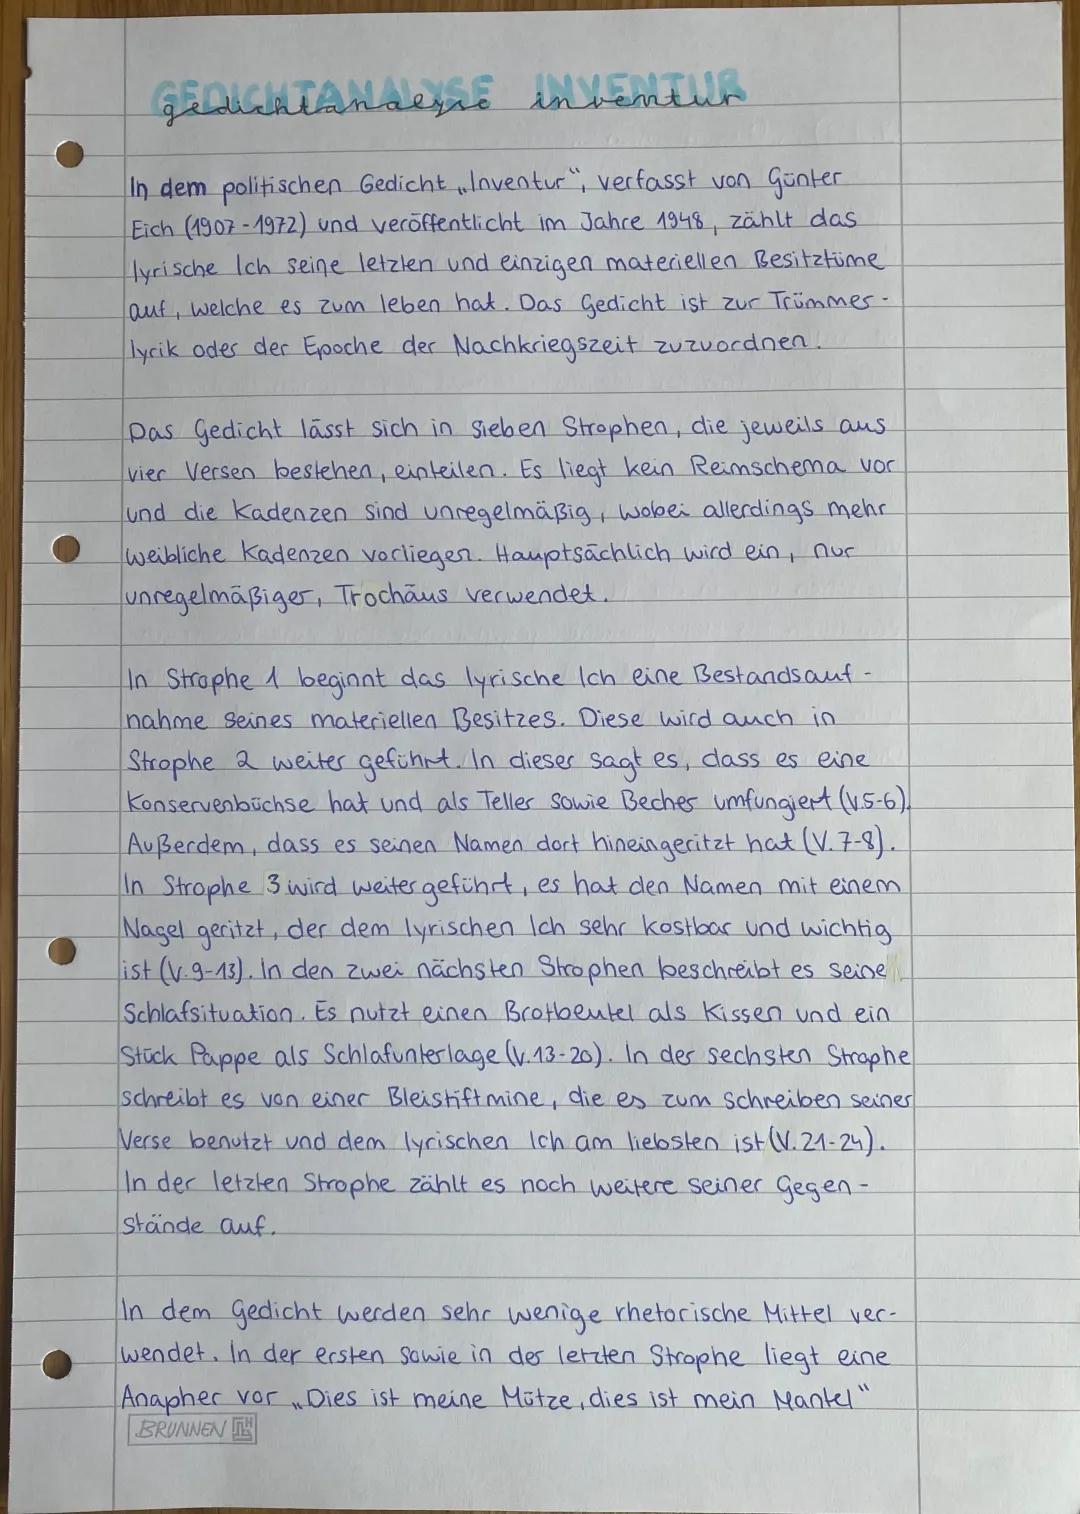 GEDICHTANALYSE INVENTUR
gedichtanalyse inventur
In dem politischen Gedicht „Inventur“, verfasst von Günter
Eich (1907-1972) und veröffentlicht im Jahre 1948, zählt das
lyrische Ich seine letzten und einzigen materiellen Besitztüme
auf, welche es zum leben hat. Das Gedicht ist zur Trümmer-
lyrik oder der Epoche der Nachkriegszeit zuzuordnen.
Das Gedicht lässt sich in sieben Strophen, die jeweils aus
vier Versen bestehen, einteilen. Es liegt kein Reimschema vor
und die Kadenzen sind unregelmäßig, wobei allerdings mehr
weibliche Kadenzen vorliegen. Hauptsächlich wird ein, nur
unregelmäßiger, Trochäus verwendet.
In Strophe 1 beginnt das lyrische Ich eine Bestandsauf-
nahme seines materiellen Besitzes. Diese wird auch in
Strophe 2 weiter geführt. In dieser sagt es, dass es eine
Konservenbüchse hat und als Teller sowie Becher umfungiert (V.5-6).
Außerdem, dass es seinen Namen dort hineingeritzt hat (V.7-8).
In Strophe 3 wird weitergeführt, es hat den Namen mit einem
Nagel geritzt, der dem lyrischen Ich sehr kostbar und wichtig
ist (V.9-13). In den zwei nächsten Strophen beschreibt es seine
Schlafsituation. Es nutzt einen Brotbeutel als Kissen und ein
Stück Pappe als Schlafunterlage (V.13-20). In der sechsten Strophe
schreibt es von einer Bleistiftmine, die es zum schreiben seiner
Verse benutzt und dem lyrischen Ich am liebsten ist (V.21-24).
In der letzten Strophe zählt es noch weitere seiner Gegen-
stände auf.
In dem Gedicht werden sehr wenige rhetorische Mittel ver-
wendet. In der ersten sowie in der letzten Strophe liegt eine
Anapher vor „Dies ist meine Mütze, dies ist mein Mantel“
BRUNNEN